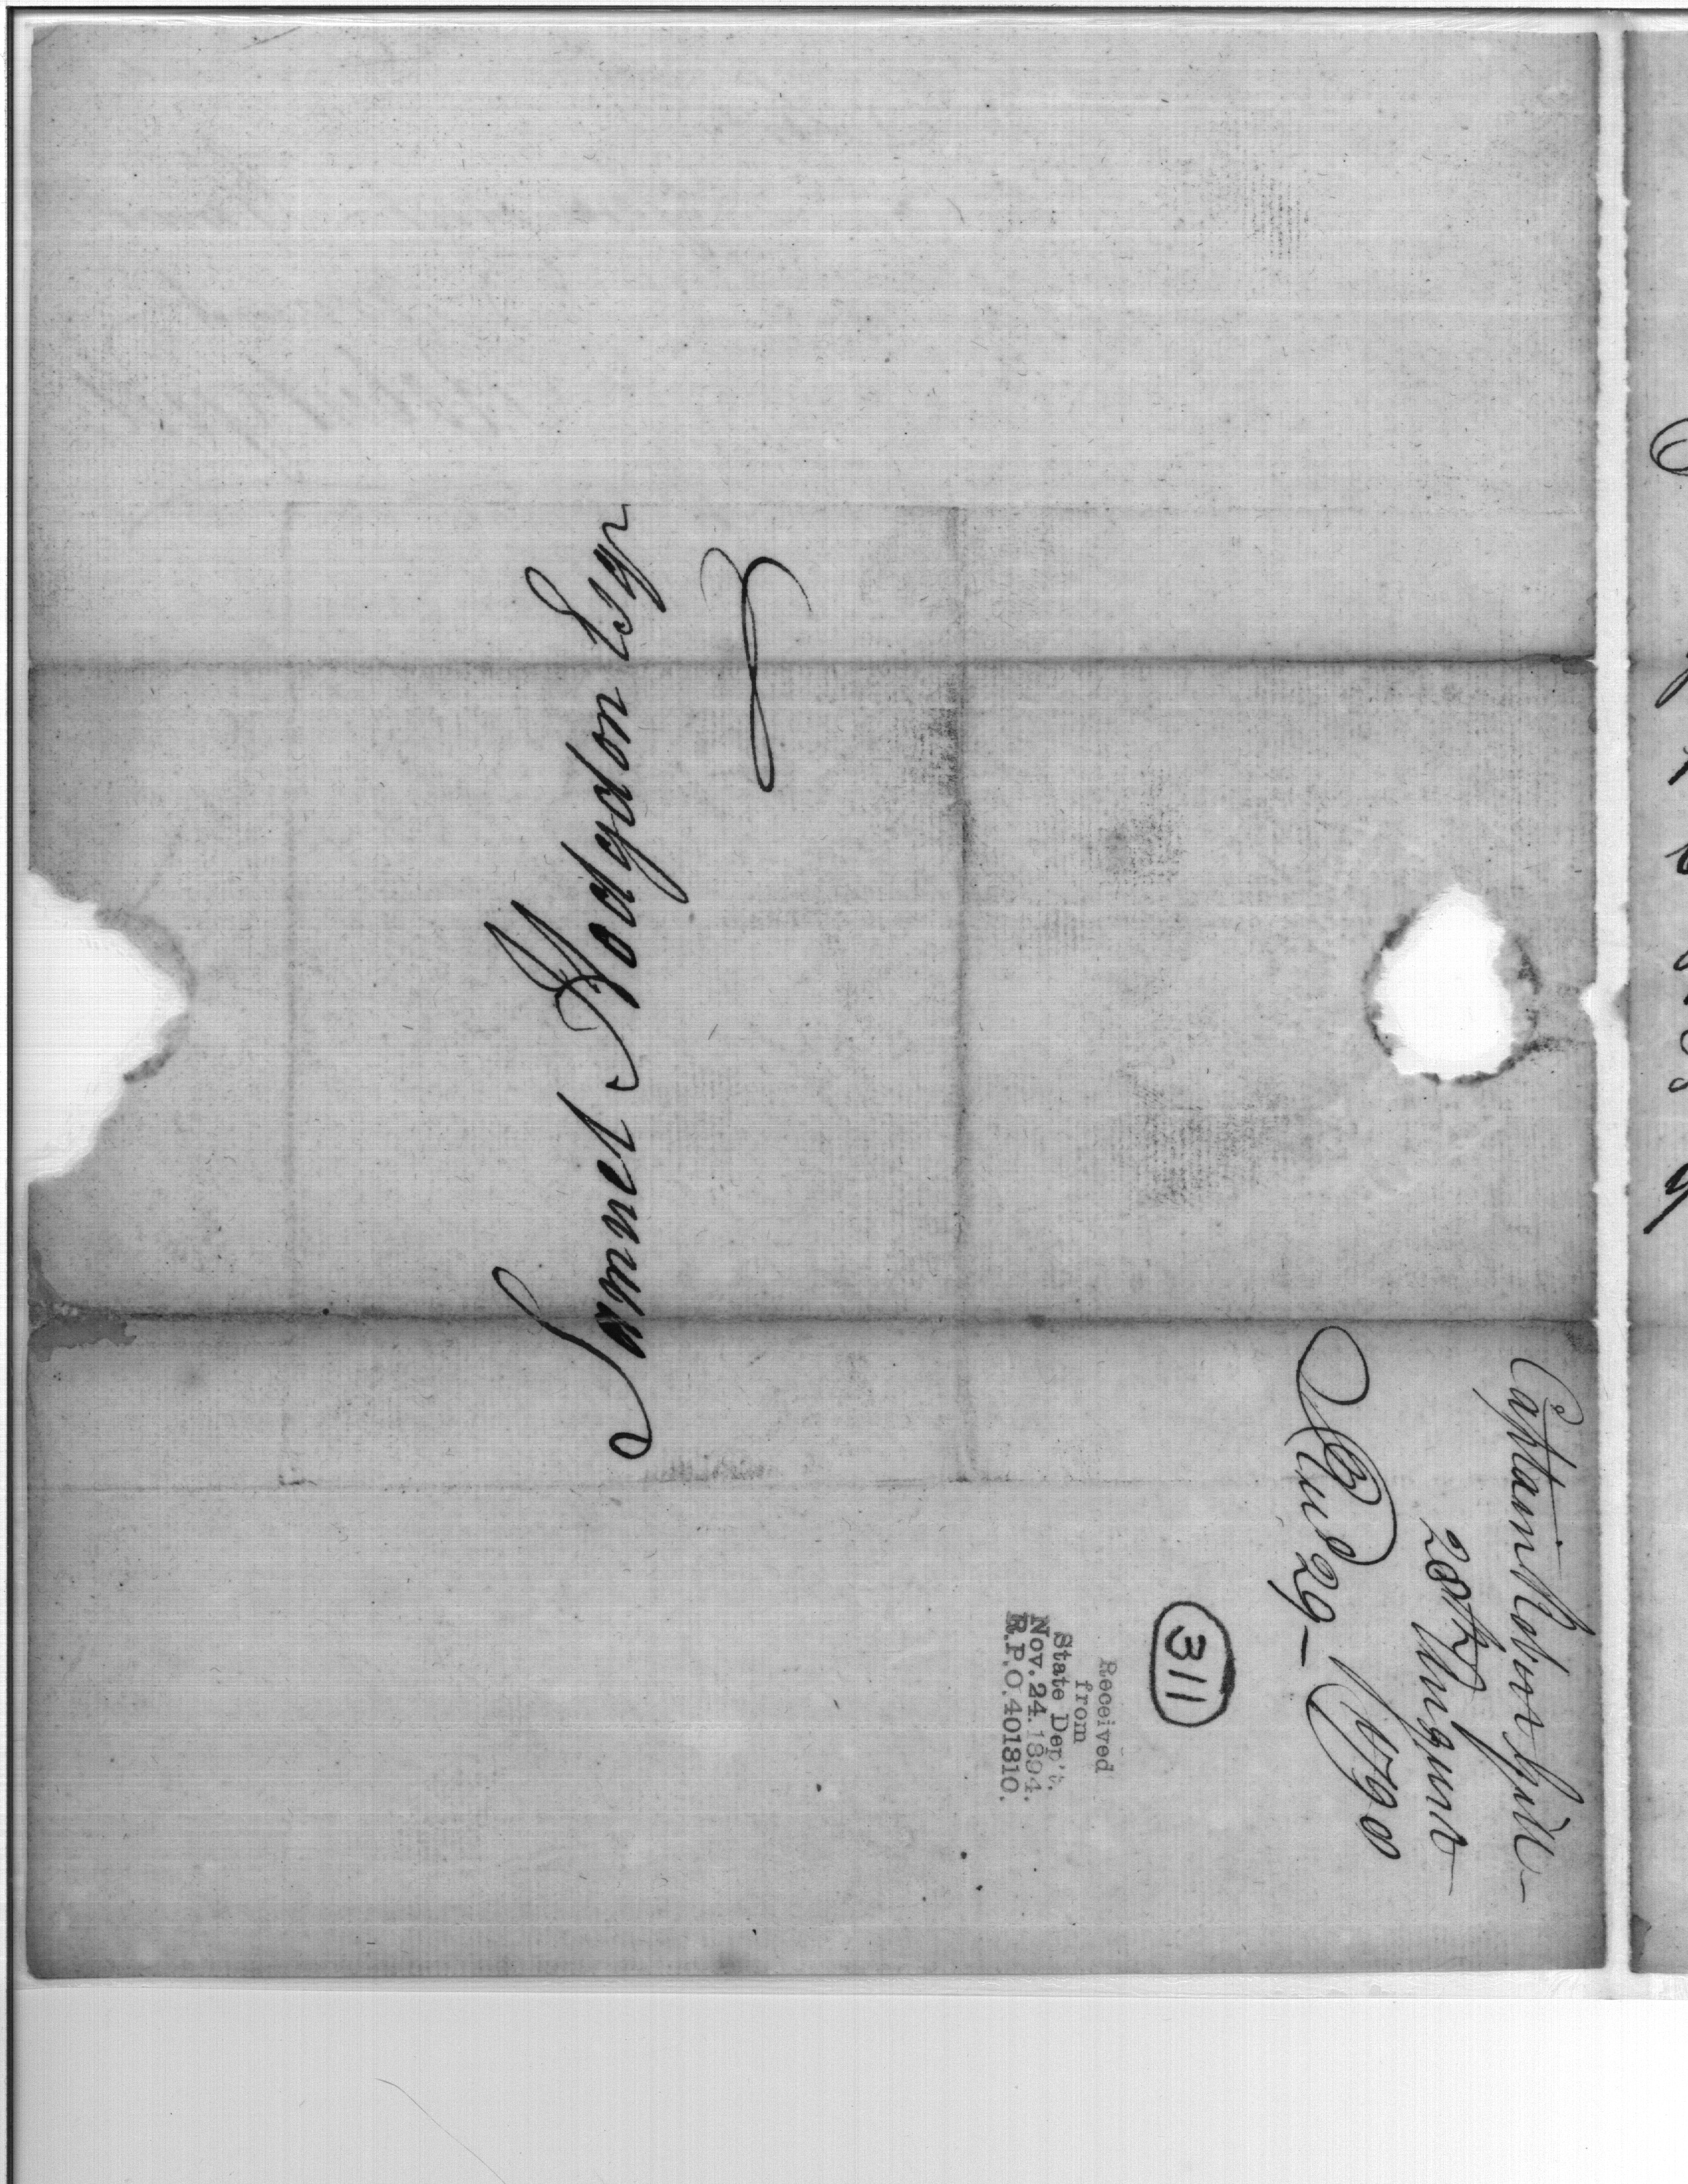 Samuel Hodgdon Esqr
Captain
28th August
29 - 1790
311
Received
from
State Dep't.
Nov. 24. 1894.
R.P.O. 401810.